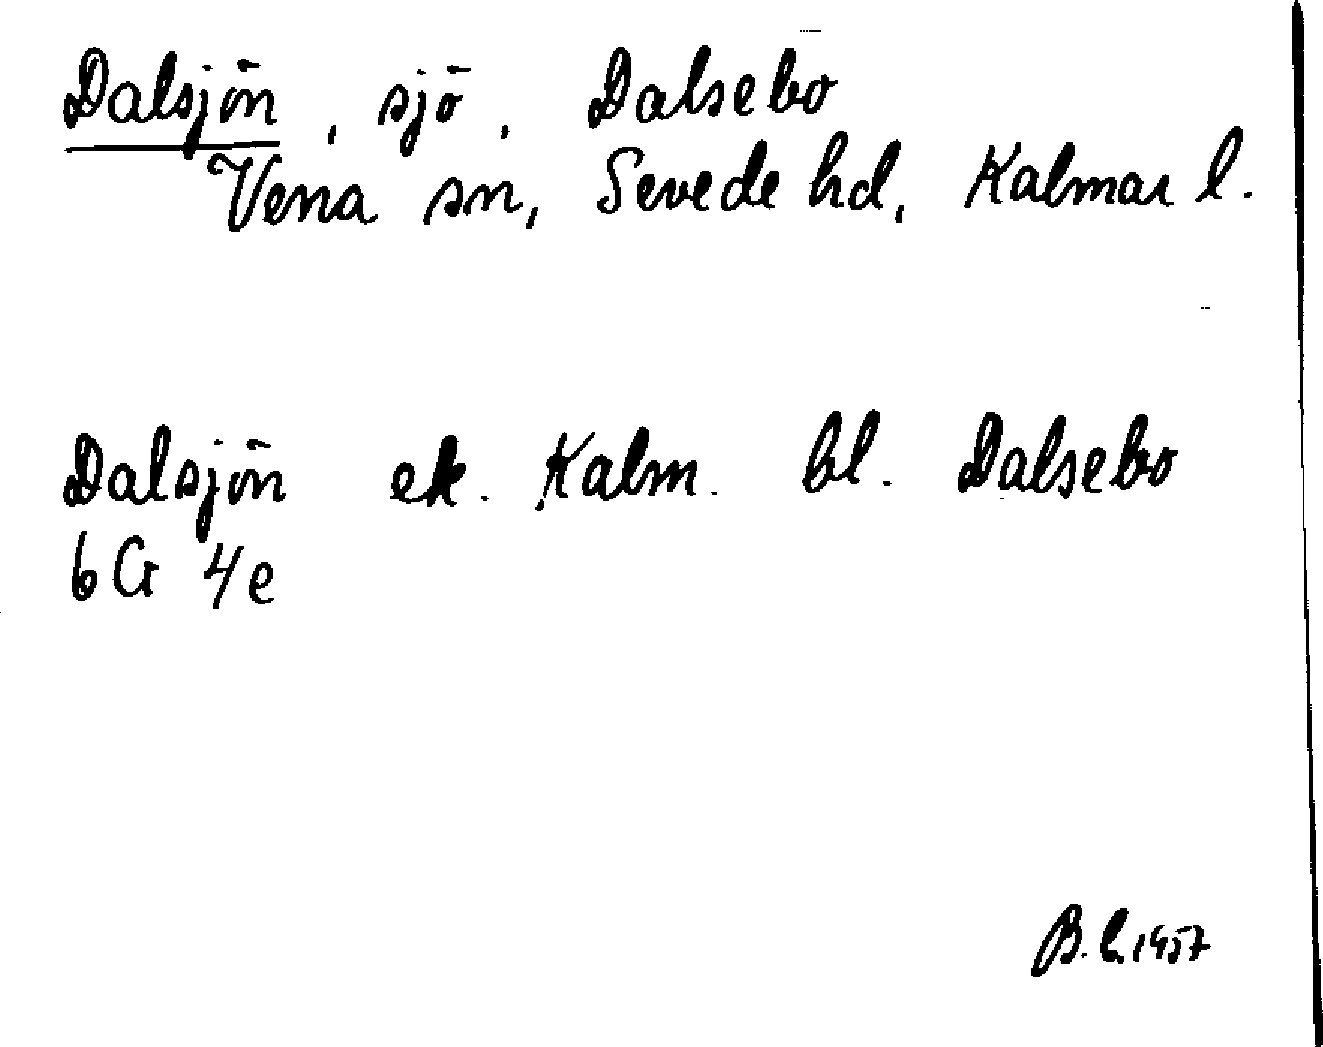 Dalsjön, sjö, Dalsebo
Vena sn, Sevede hd, Kalmar l.
Dalsjön ek. Kalm. bl. Dalsebo
6G 4e
B. L. 1957